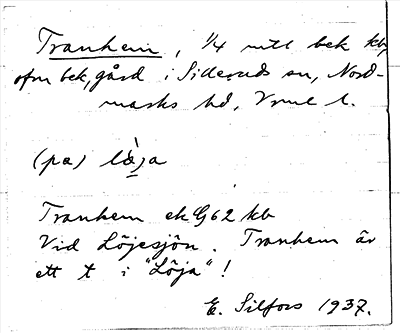 Tranhem, 1/4 mtl bek kb,
ofm bek, gård i Silleruds sn, Nord-
marks hd, Vrml l.
(pa) læ̀ja
Tranhem ek G62 kb
Vid Löjesjön. Tranhem är
ett t i "Löja"!
E. Silfors 1937.